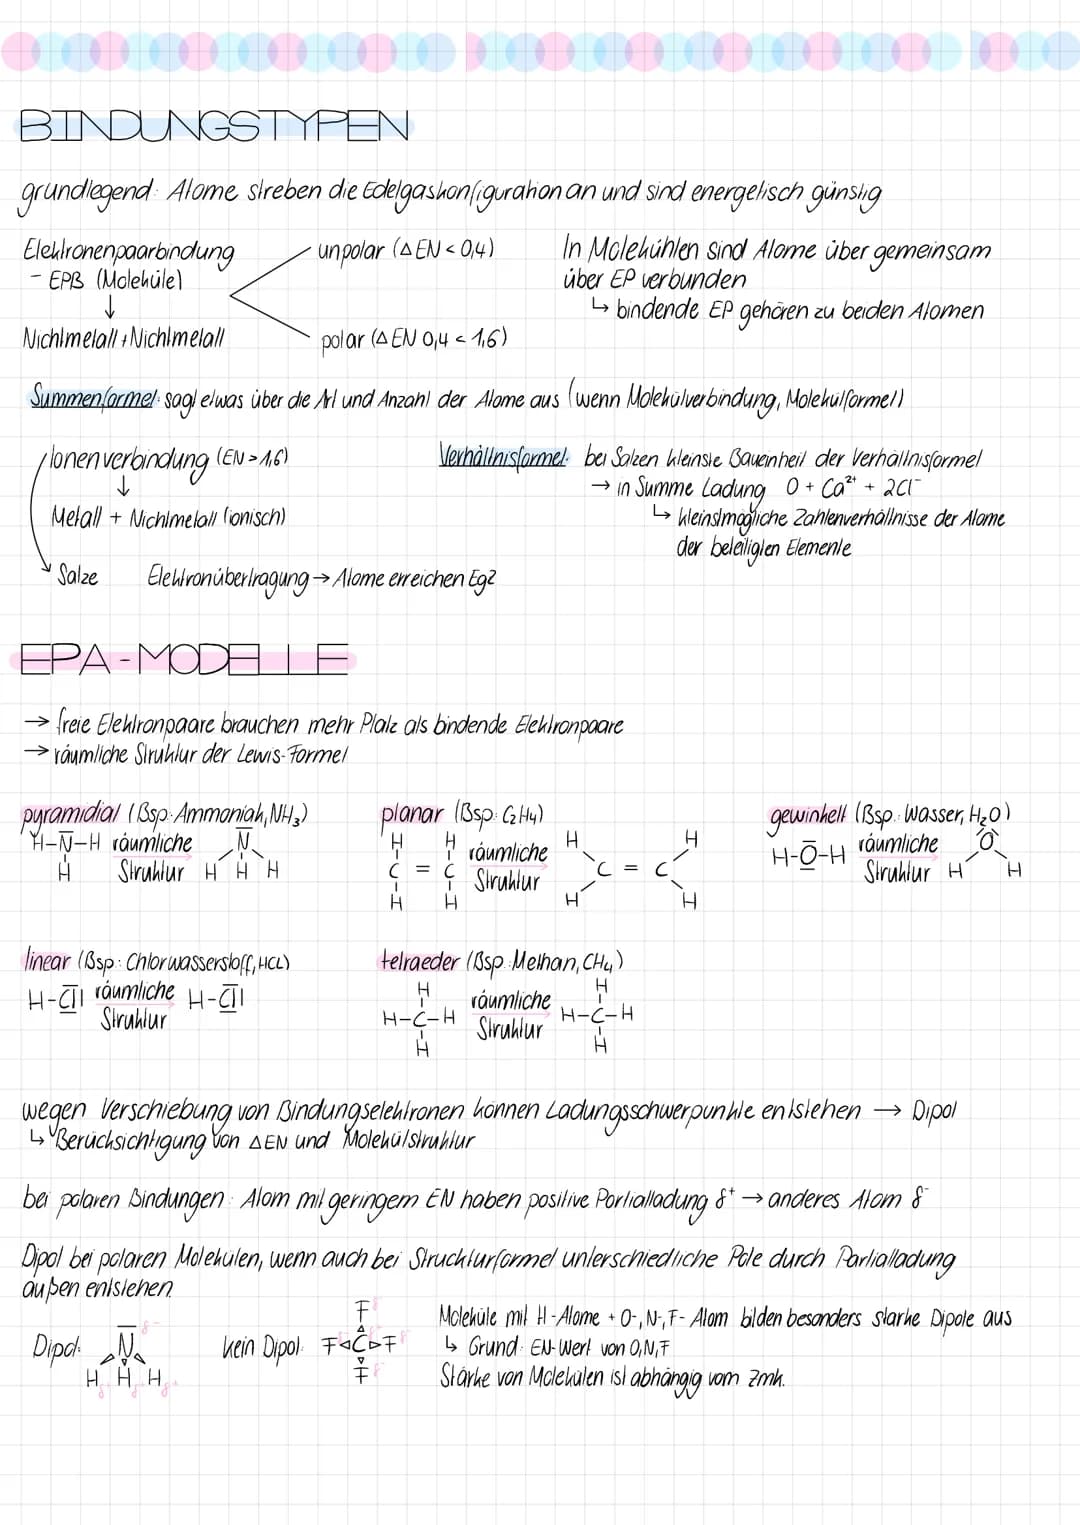 BINDUNGSTYPEN
grundlegend: Atome streben die Edelgaskonfiguration an und sind energetisch günstig
Elektronenpaarbindung
- EPB (Moleküle)
↓
Nichtmetall + Nichtmetall
unpolar (ΔEN < 0,4)
polar (ΔEN 0,4 < 1,6)
In Molekühlen sind Atome über gemeinsam
über EP verbunden
↳ bindende EP gehören zu beiden Atomen
Summenformel: sagt etwas über die Art und Anzahl der Atome aus (wenn Molekülverbindung, Molekülformel)
Ionenverbindung (EN > 1,6)
↓
Metall + Nichtmetall (ionisch)
Salze Elektronübertragung → Atome erreichen EgZ
Verhältnisformel: bei Salzen kleinste Baueinheit der Verhältnisformel
→ in Summe Ladung 0 + Ca²⁺ + 2Cl⁻
↳ kleinstmögliche Zahlenverhältnisse der Atome
der beteiligten Elemente
EPA-MODELLE
→ freie Elektronpaare brauchen mehr Platz als bindende Elektronpaare
→ räumliche Struktur der Lewis-Formel
pyramidial (Bsp: Ammoniak, NH₃)
H-N-H räumliche N
H Struktur H H H
planar (Bsp: C₂H₄)
H H räumliche H H
C = C Struktur C = C
H H H H
gewinkelt (Bsp.: Wasser, H₂O)
H-O-H räumliche O
Struktur H H
linear (Bsp: Chlorwasserstoff, HCL)
H-Cl räumliche H-Cl
Struktur
tetraeder (Bsp: Methan, CH₄)
H räumliche H
H-C-H Struktur H-C-H
H H
wegen Verschiebung von Bindungselektronen können Ladungsschwerpunkte entstehen → Dipol
↳ Berücksichtigung von ΔEN und Molekülstruktur
bei polaren Bindungen: Atom mit geringem EN haben positive Partialladung δ⁺ → anderes Atom δ⁻
Dipol bei polaren Molekülen, wenn auch bei Struckturformel unterschiedliche Pole durch Partialladung
außen entstehen
Dipol: N δ-
H H H
δ+ δ+ δ+
kein Dipol: F δ-
F C F δ-
F δ-
Moleküle mit H-Atome + O-, N-, F- Atom bilden besonders starke Dipole aus
↳ Grund: EN-Wert von O,N,F
Stärke von Molekülen ist abhängig vom Zmk.